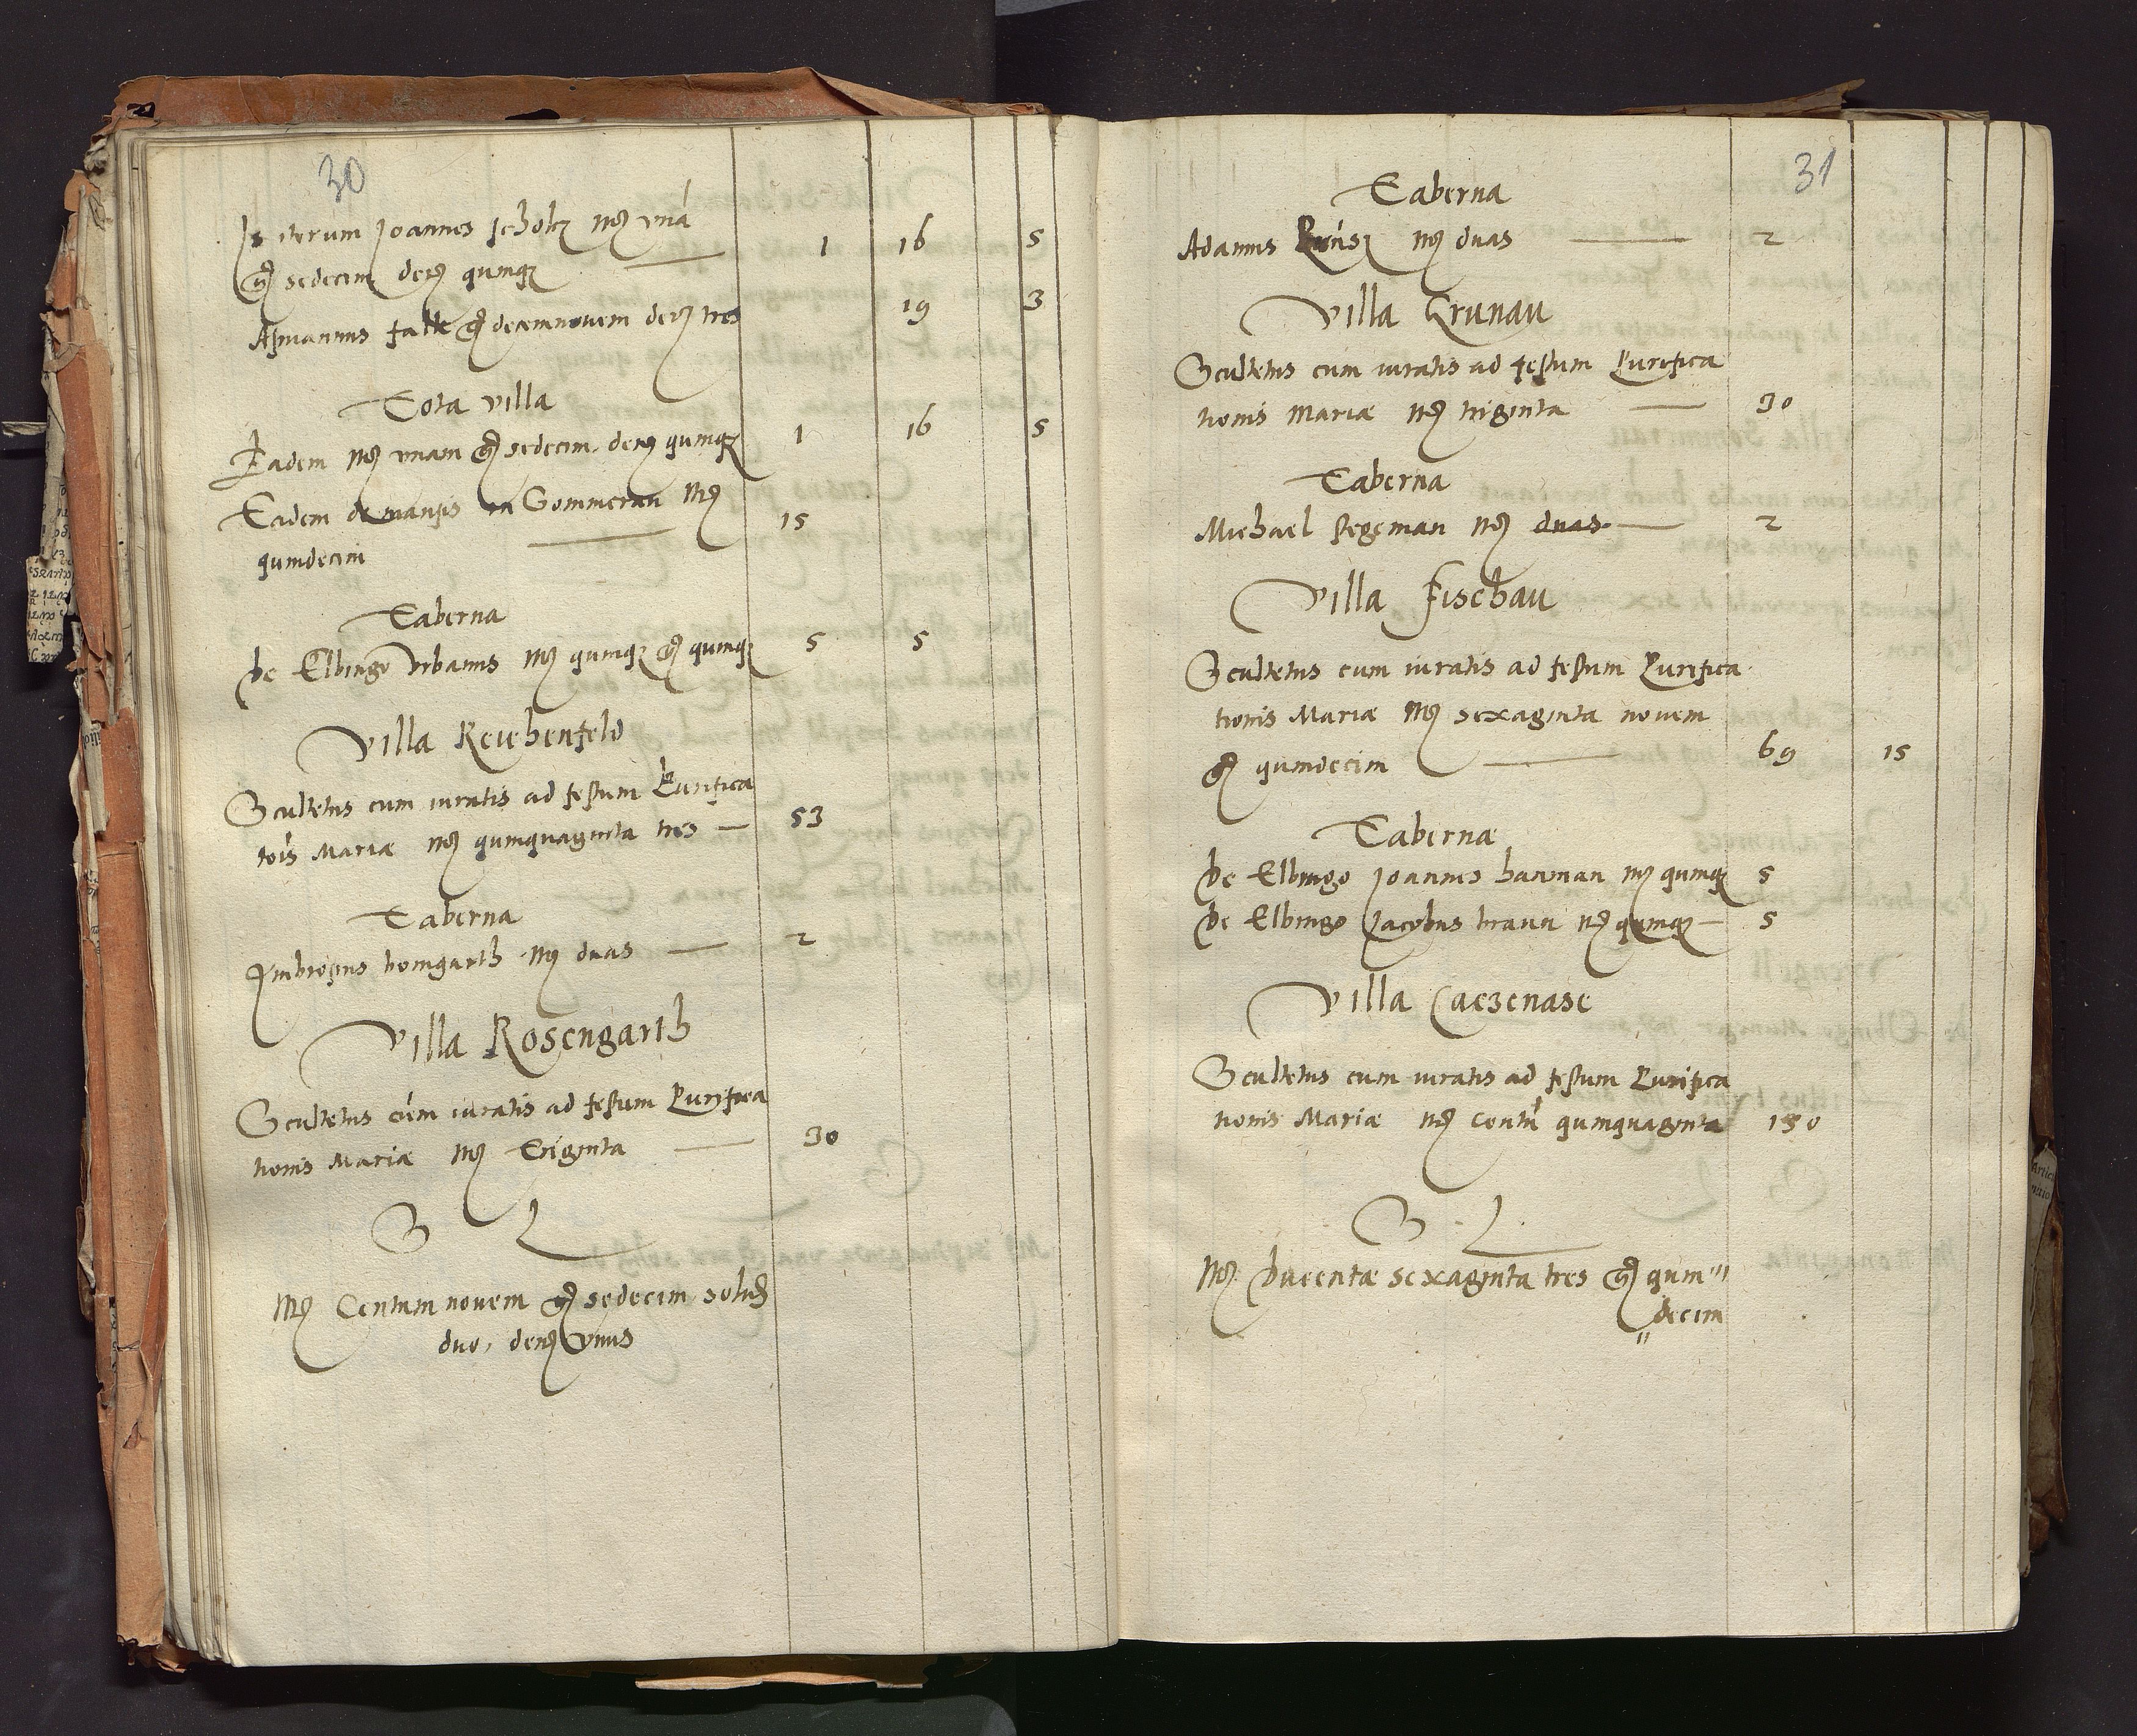 30
Is iterum Joannes Scholtz mr̃ unã 1 16 5
gr̃ sedecim den̄ quinqȝ
Asmannus falke gr̃ decemnovem den̄ tres 19 3
Tota villa
Eadem mr̃ unam gr̃ sedecim den̄ quinqȝ 1 16 5
Eadem de mansis in Sommerau mr̃ 15
quindecim
Taberna
De Elbingo Urbanus mr̃ quinqȝ gr̃ quinqȝ 5 5
Villa Reichenfeld
Scultetus cum iuratis ad festum Purifica
tõis Mariæ mr̃ quinquaginta tres 53
Taberna
Ambrosius bomgarth mr̃ duas 2
Villa Rosengarth
Scultetus cum iuratis ad festum Purifica
tionis Mariæ mr̃ Triginta 30
S L
Mr̃ Centum novem gr̃ sedecim solid
duo, den̄ unus
31
Taberna
Adamus mr̃ duas 2
Villa Grunau
Scultetus cum iuratis ad festum Purifica
tionis Mariæ mr̃ triginta 30
Taberna
Michael Stegeman mr̃ duas 2
Villa Fischau
Scultetus cum iuratis ad festum Purifica
tionis Mariæ mr̃ sexaginta novem
gr̃ quindecim 69 15
Tabernæ
De Elbingo Joannes hanman mr̃ quinqȝ 5
De Elbingo Jacobus braun mr̃ quinqȝ 5
Villa Caczenase
Scultetus cum iuratis ad festum Purifica
tionis Mariæ mr̃ Centũ quinquaginta 150
S L
Mr̃ Ducentæ sexaginta tres gr̃ quin"
"decim